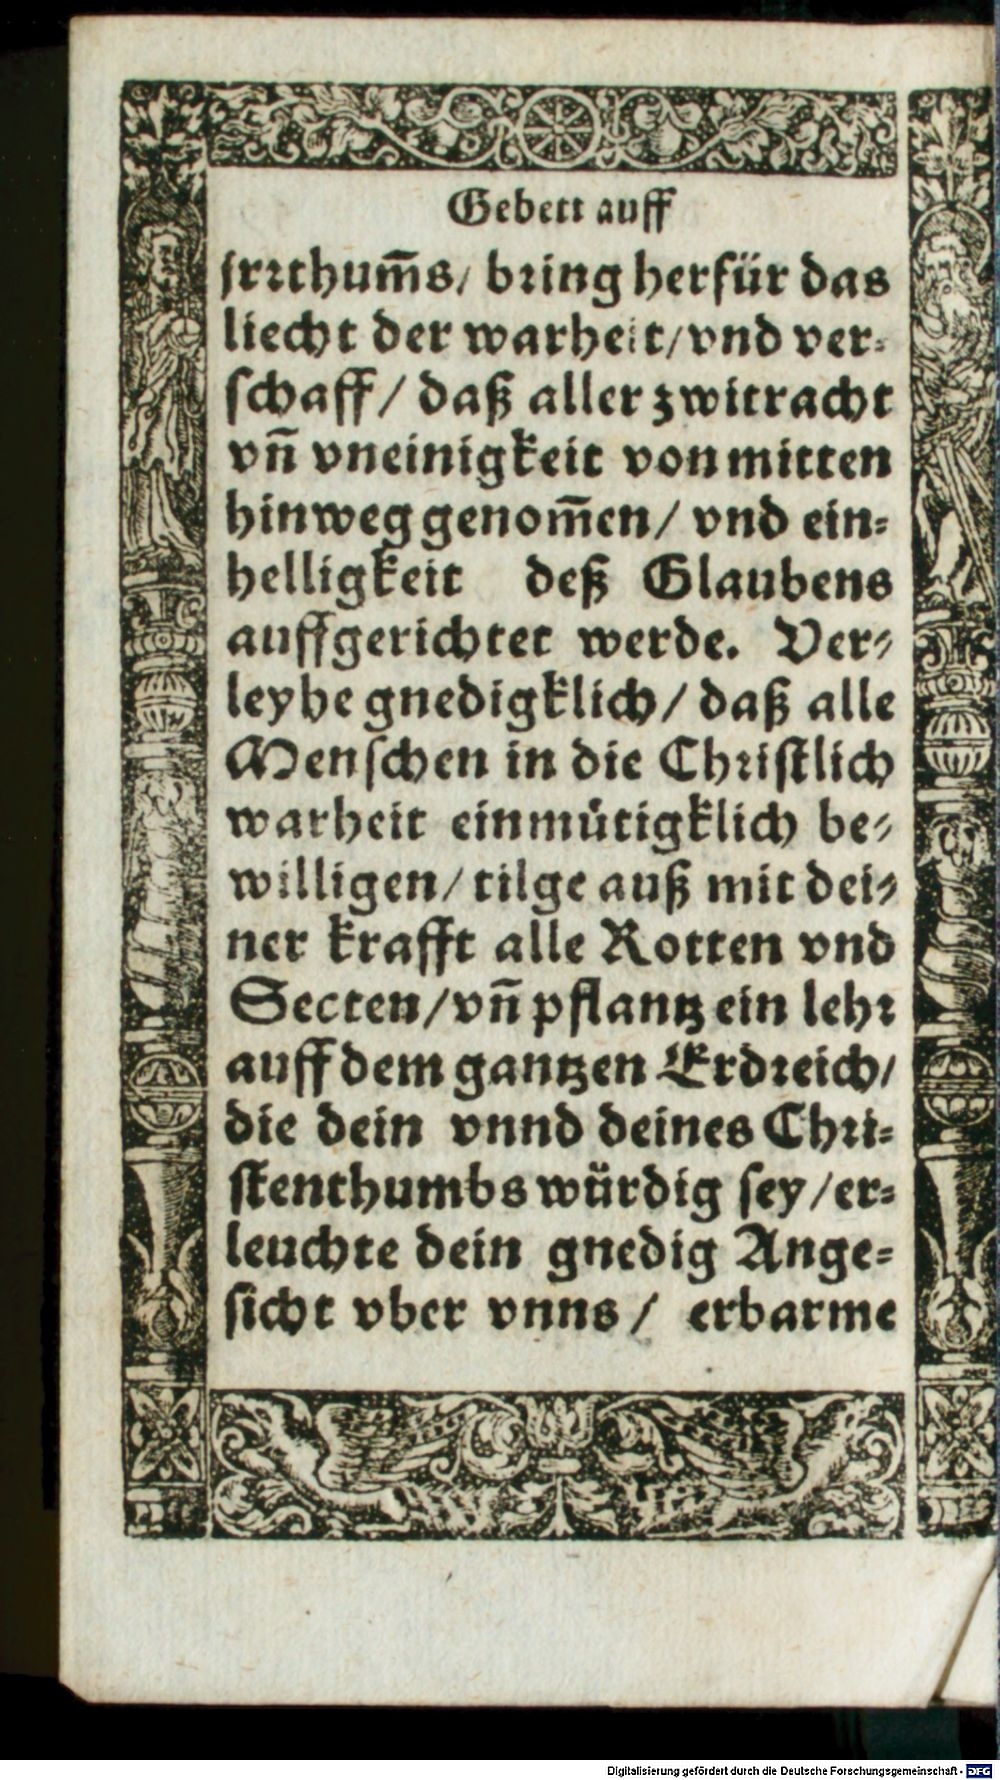 Gebett auff
jrꝛthum̃s/ bꝛing herfür das
liecht der warheit/vnd ver-
schaff/ daß aller zwitracht
vñ vneinigkeit von mitten
hinweg genom̃en/ vnd ein-
helligkeit deß Glaubens
auffgerichtet werde. Ver-
leyhe gnedigklich/ daß alle
Menschen in die Chꝛistlich
warheit einmütigklich be-
willigen/ tilge auß mit dei-
ner krafft alle Rotten vnd
Secten/vñ pflantz ein lehꝛ
auff dem gantzen Erdꝛeich/
die dein vnnd deines Chꝛi-
stenthumbs würdig sey/er-
leuchte dein gnedig Ange-
sicht vber vnns/ erbarme
Digitalisierung gefördert durch die Deutsche Forschungsgemeinschaft - DFG